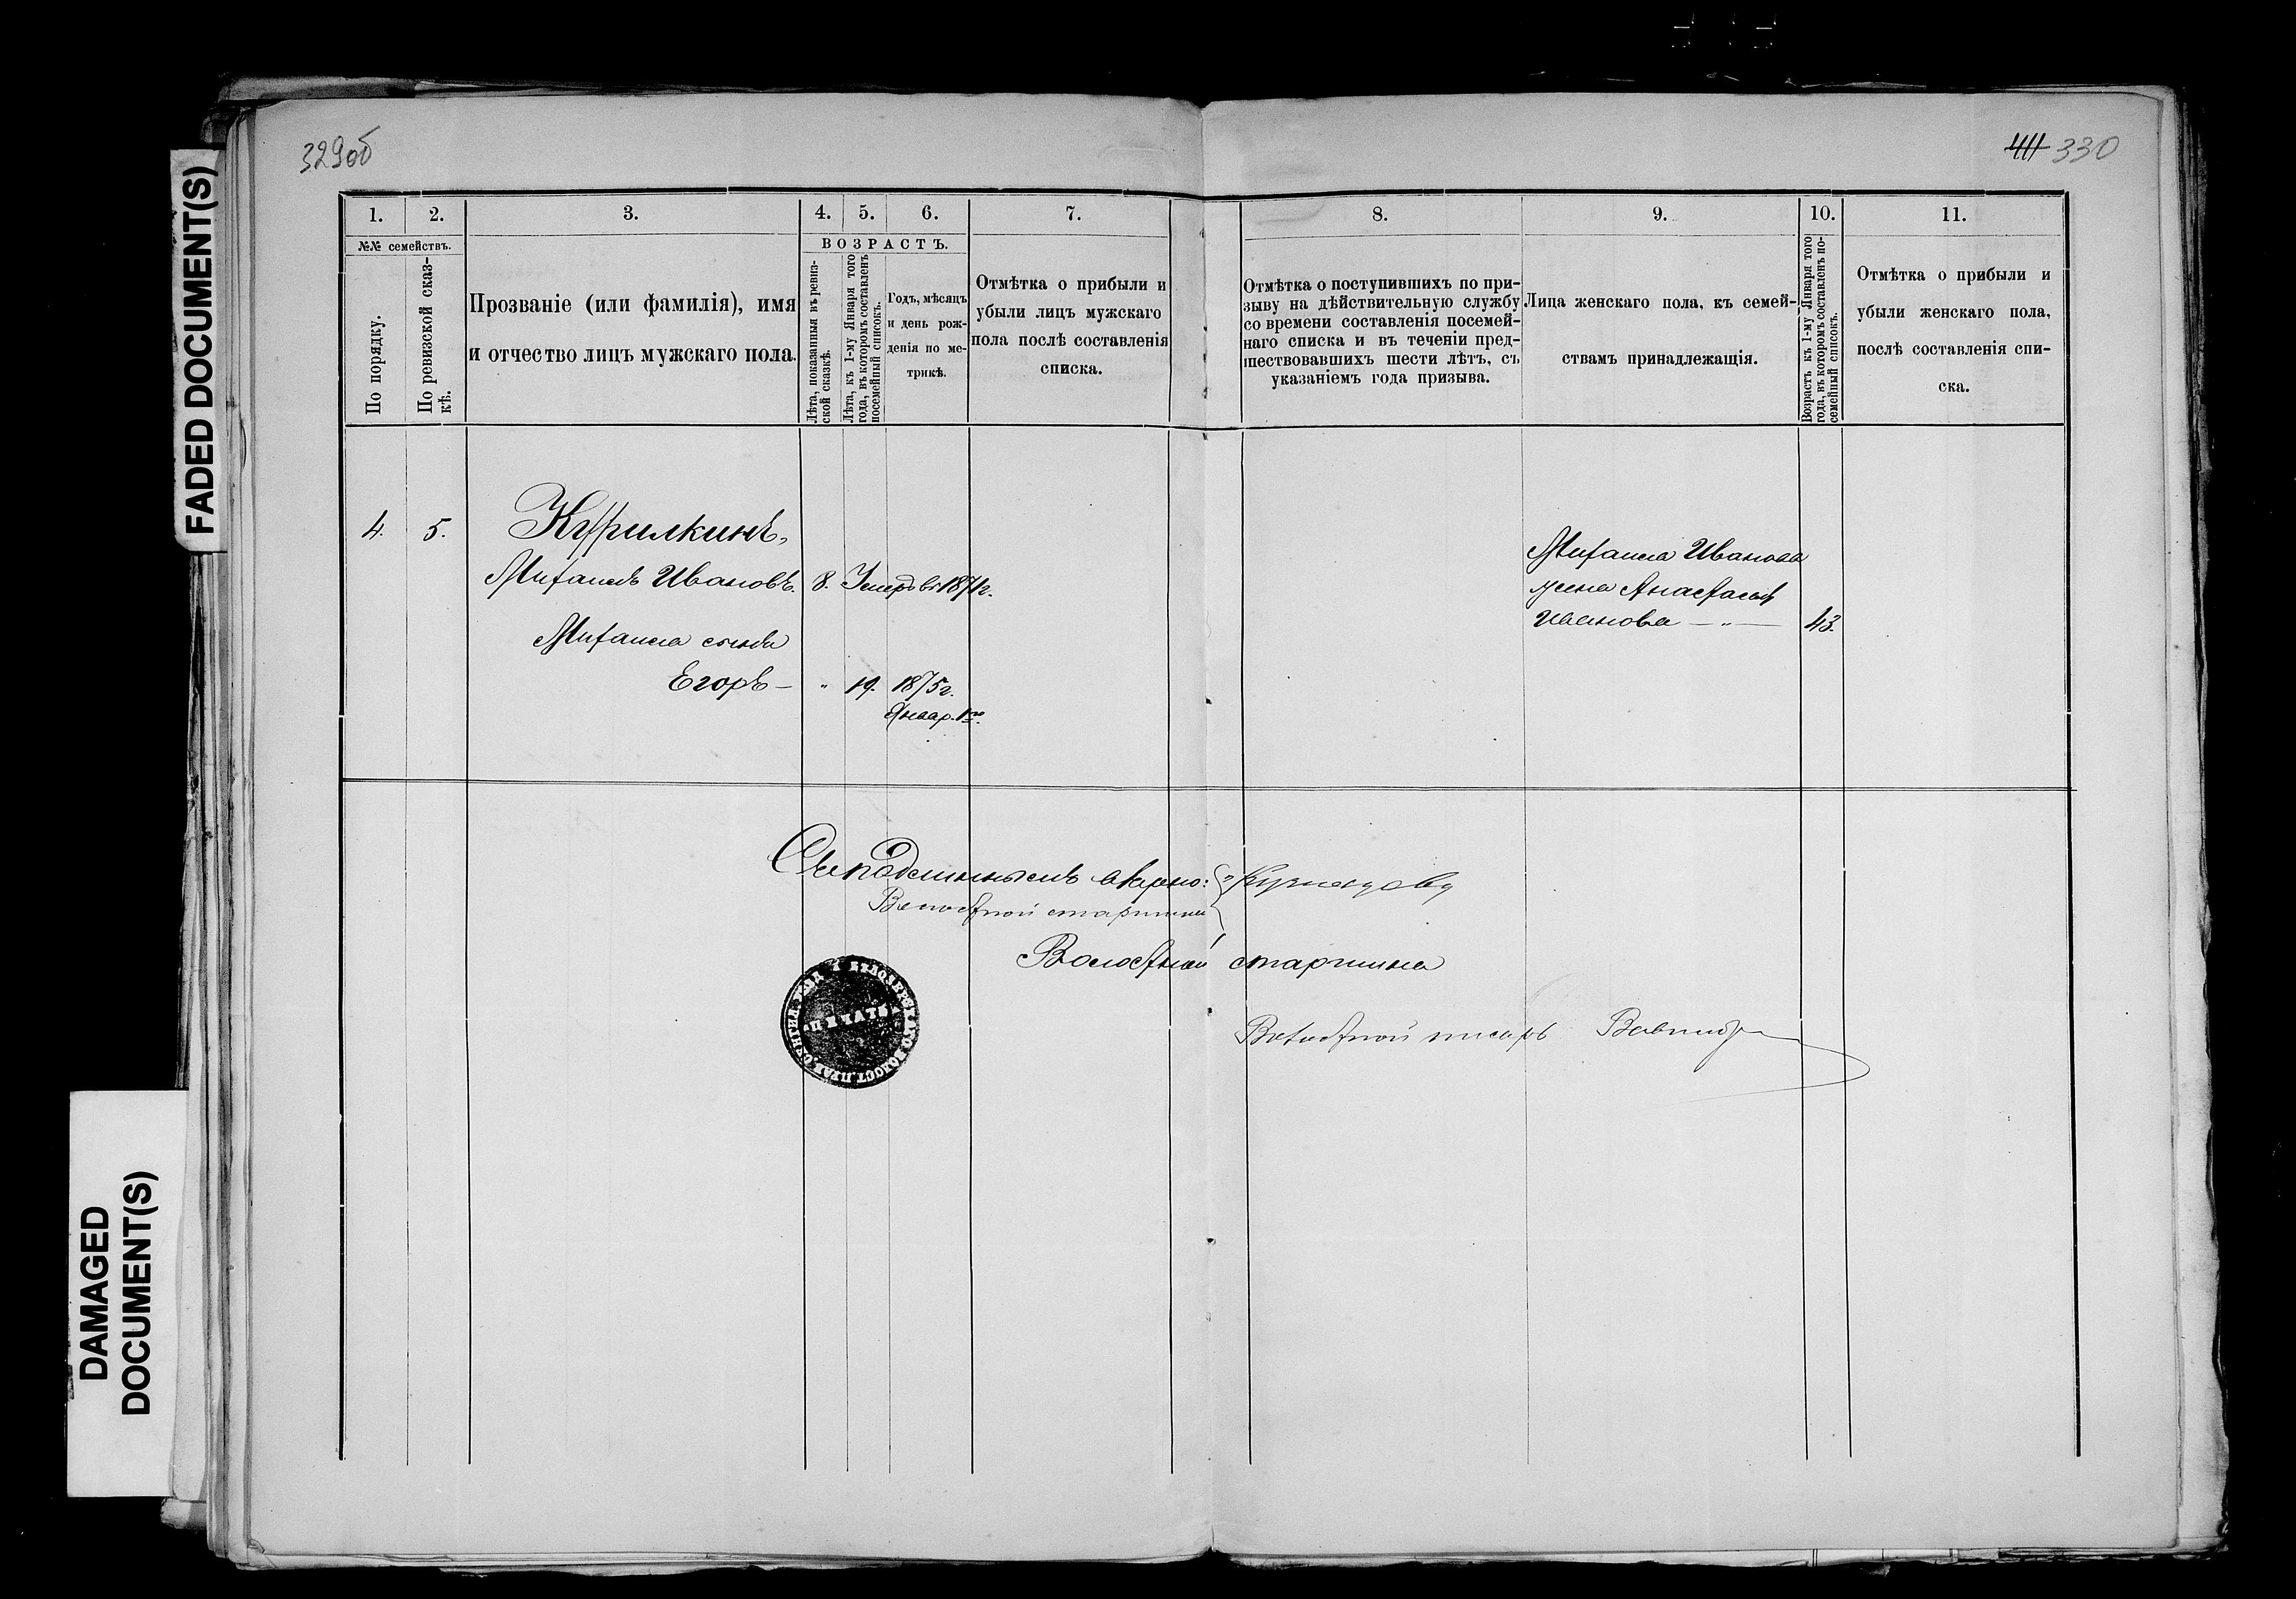 329об
411 330
FADED DOCUMENT(S)
DAMAGED
DOCUMENT(S)
1.
2.
3.
4.
5.
6.
7.
8.
9.
10.
11.
№№ семействъ.
По порядку.
По ревизской сказ-
кѣ.
Прозваніе (или фамилія), имя
и отчество лицъ мужскаго пола.
ВОЗРАСТЪ.
Лѣта, показанныя въ ревиз-
ской сказкѣ.
Лѣта, къ 1-му Января того
года, въ которомъ составленъ
посемейный списокъ.
Годъ, мѣсяцъ
и день рож-
денія по ме-
трикѣ.
Отмѣтка о прибыли и
убыли лицъ мужскаго
пола послѣ составленія
списка.
Отмѣтка о поступившихъ по при-
зыву на дѣйствительную службу
со времени составленія посемей-
наго списка и въ теченіи пред-
шествовавшихъ шести лѣтъ, съ
указаніемъ года призыва.
Лица женскаго пола, къ семей-
ствамъ принадлежащія.
Возрастъ къ 1-му Января того
года, въ которомъ составленъ по-
семейный списокъ.
Отмѣтка о прибыли и
убыли женскаго пола,
послѣ составленія спи-
ска.
4. 5. Курилкинъ,
Михаилъ Ивановъ. 8. Умеръ въ 1871г.
Михаила сынъ
Егоръ — " 19. 1875г.
Январ. 1го.
Михаила Иванова
жена Анастасья
Иванова — " — 43.
Съ подлиннымъ вѣрно:
Волостной старшина Кузнецовъ
Волостной старшина
Волостной писарь
ПЕЧАТЬ